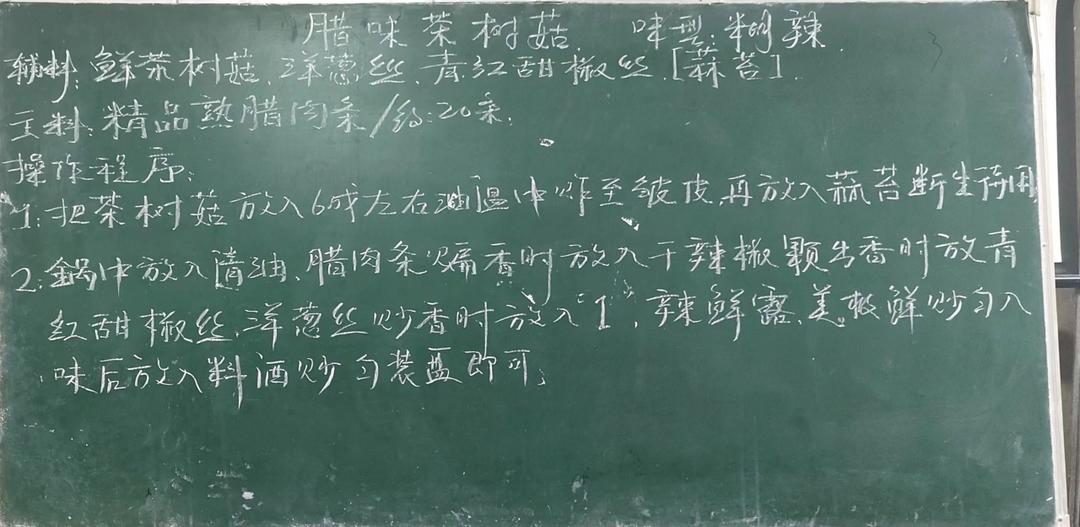 腊味茶树菇. 味型:糊辣.
辅料:鲜茶树菇.洋葱丝.青红甜椒丝.[蒜苔].
主料:精品熟腊肉条/约:20条.
操作程序:
1:把茶树菇放入6成左右油温中炸至皱皮.再放入蒜苔断生待用
2:鍋中放入清油.腊肉条煵香时放入干辣椒颗出香时放青
红甜椒丝.洋葱丝炒香时放入“1”.辣鲜露.美极鲜炒匀入
味后放入料酒炒匀装盘即可.